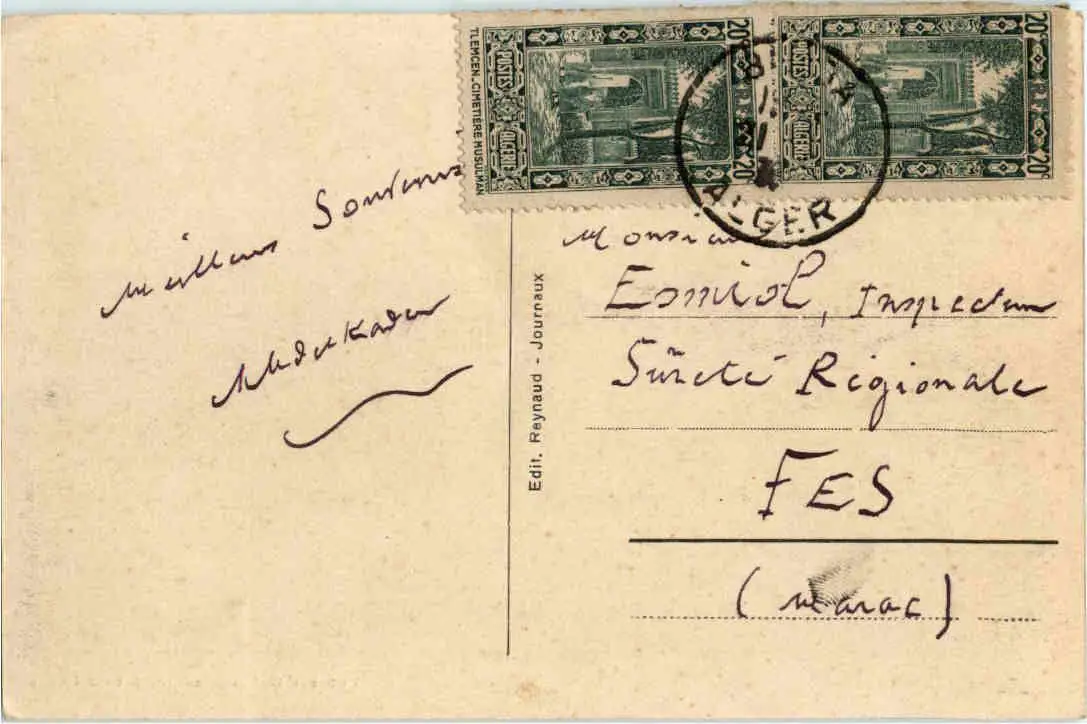 20c
20c
POSTES ALGERIE
20c
20c
POSTES ALGERIE
TLEMCEN.CIMETIERE MUSULMAN
ALGER
Meilleurs Souvenirs
Abdelkader
Edit. Reynaud - Journaux
Monsieur
Esmiol, Inspecteur
Sûreté Régionale
FES
(Maroc)